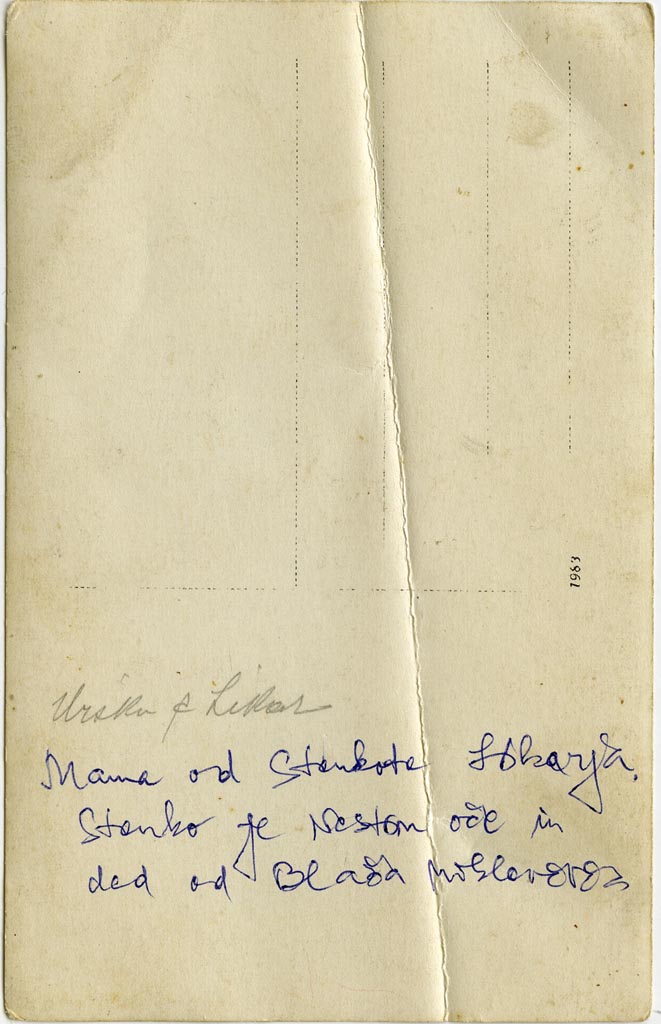 1983
Urška & Likar
Mama od Stankota Likarja.
Stanko je oče in
ded od Blaža